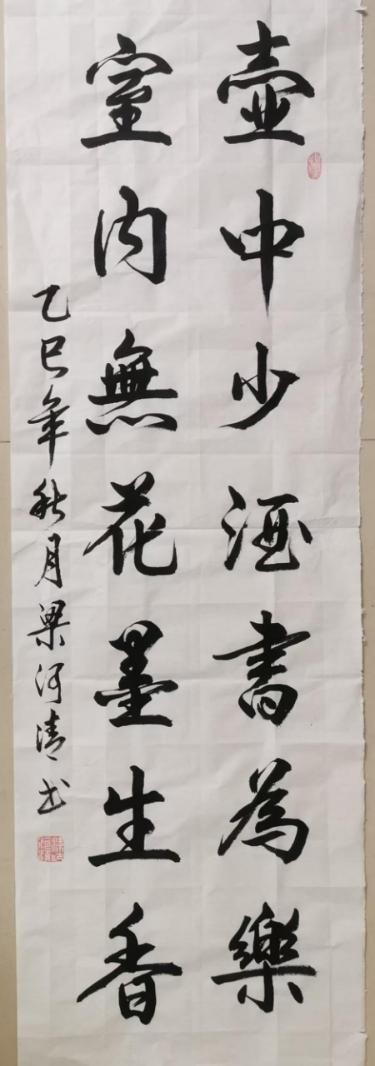 壺中少酒書為樂
室内無花墨生香
乙巳年秋月梁河清书